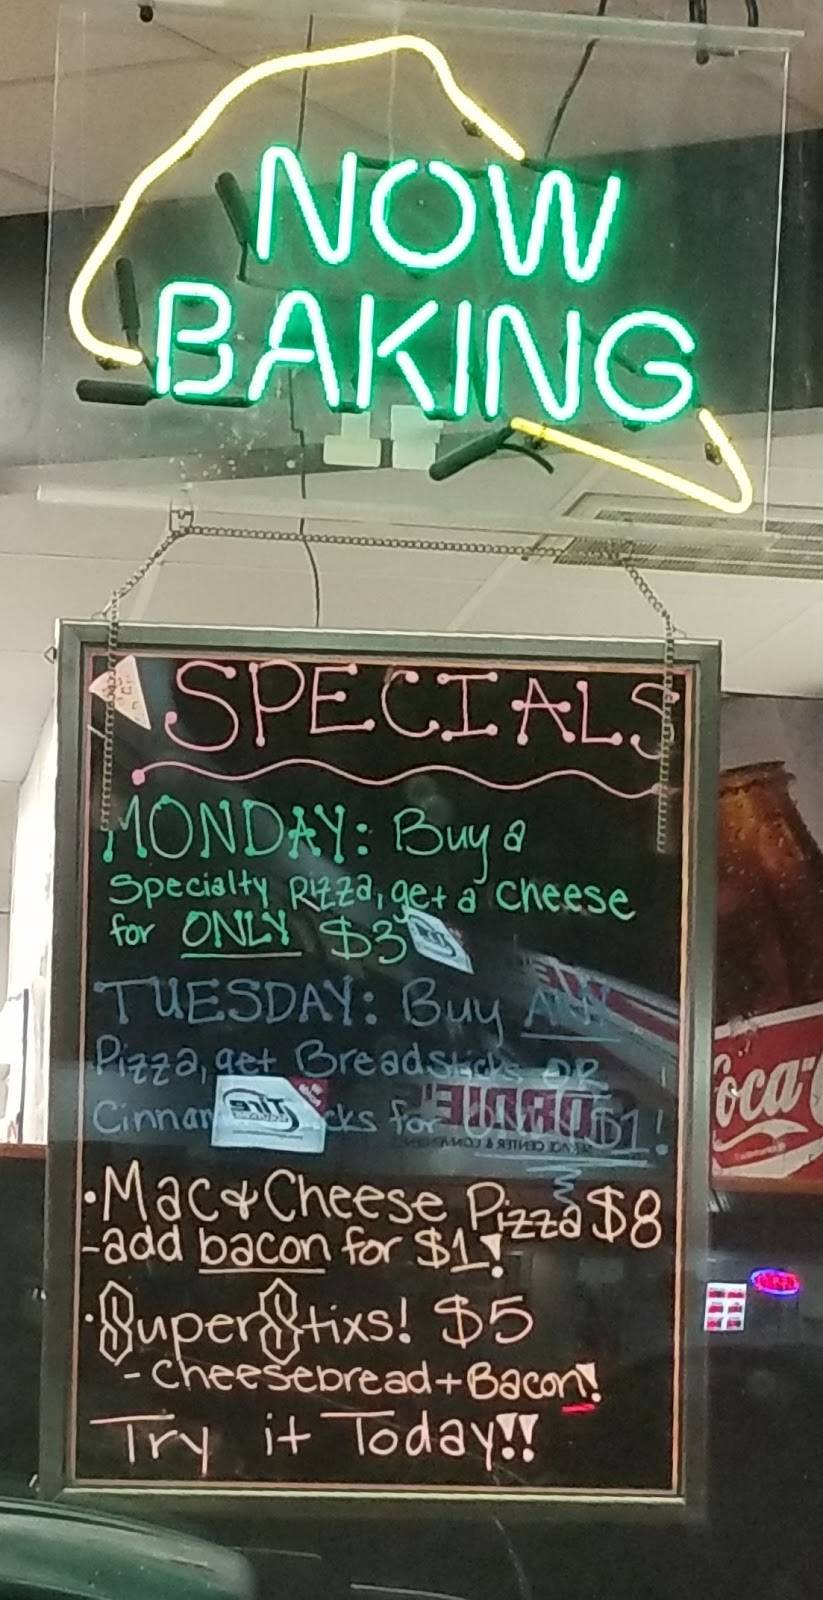 NOW
BAKING
SPECIALS
MONDAY: Buy a
Specialty Pizza, get a cheese
for ONLY $3
TUESDAY: Buy ANY
Pizza, get Breadsticks OR
for ONLY $1!
•Mac & Cheese Pizza $8
-add bacon for $1!
•SuperStixs! $5
-Cheesebread+Bacon!
Try it Today!!
Tire
Coca-